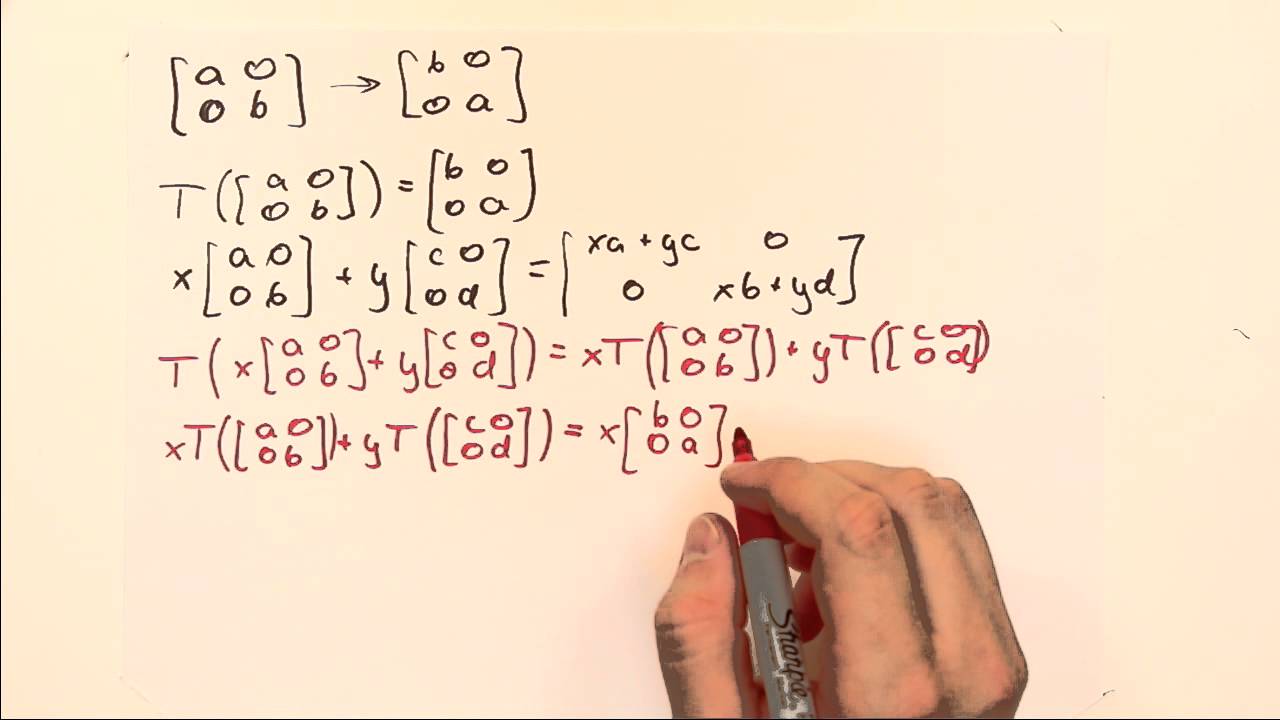 [a 0; 0 b] → [b 0; 0 a]
T([a 0; 0 b]) = [b 0; 0 a]
x[a 0; 0 b] + y[c 0; 0 d] = [xa + yc 0; 0 xb + yd]
T(x[a 0; 0 b] + y[c 0; 0 d]) = xT([a 0; 0 b]) + yT([c 0; 0 d])
xT([a 0; 0 b]) + yT([c 0; 0 d]) = x[b 0; 0 a]
Sharpie